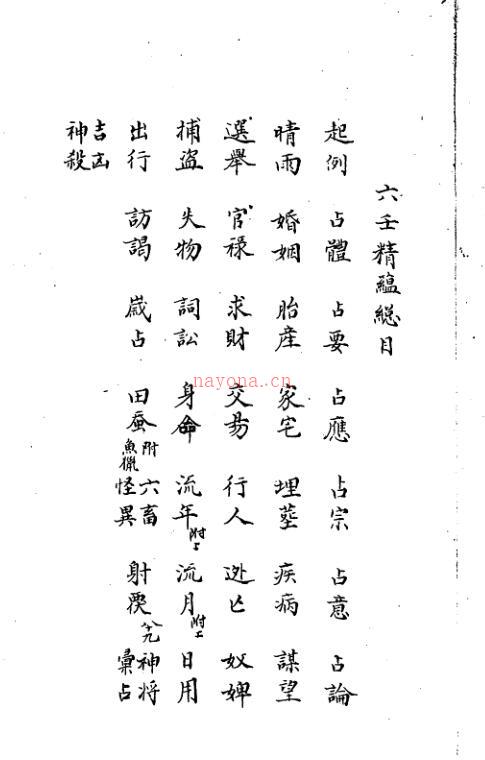 六壬精蘊總目
起例 占體 占要 占應 占宗 占意 占論
晴雨 婚姻 胎産 家宅 埋葬 疾病 謀望
選舉 官祿 求財 交易 行人 逃亡 奴婢
捕盗 失物 詞訟 身命 流年附上 流月附上 日用
出行 訪謁 歲占 田蚕附魚獵 六畜怪異 射覆 神将彙占
吉凶神殺
nayona.cn